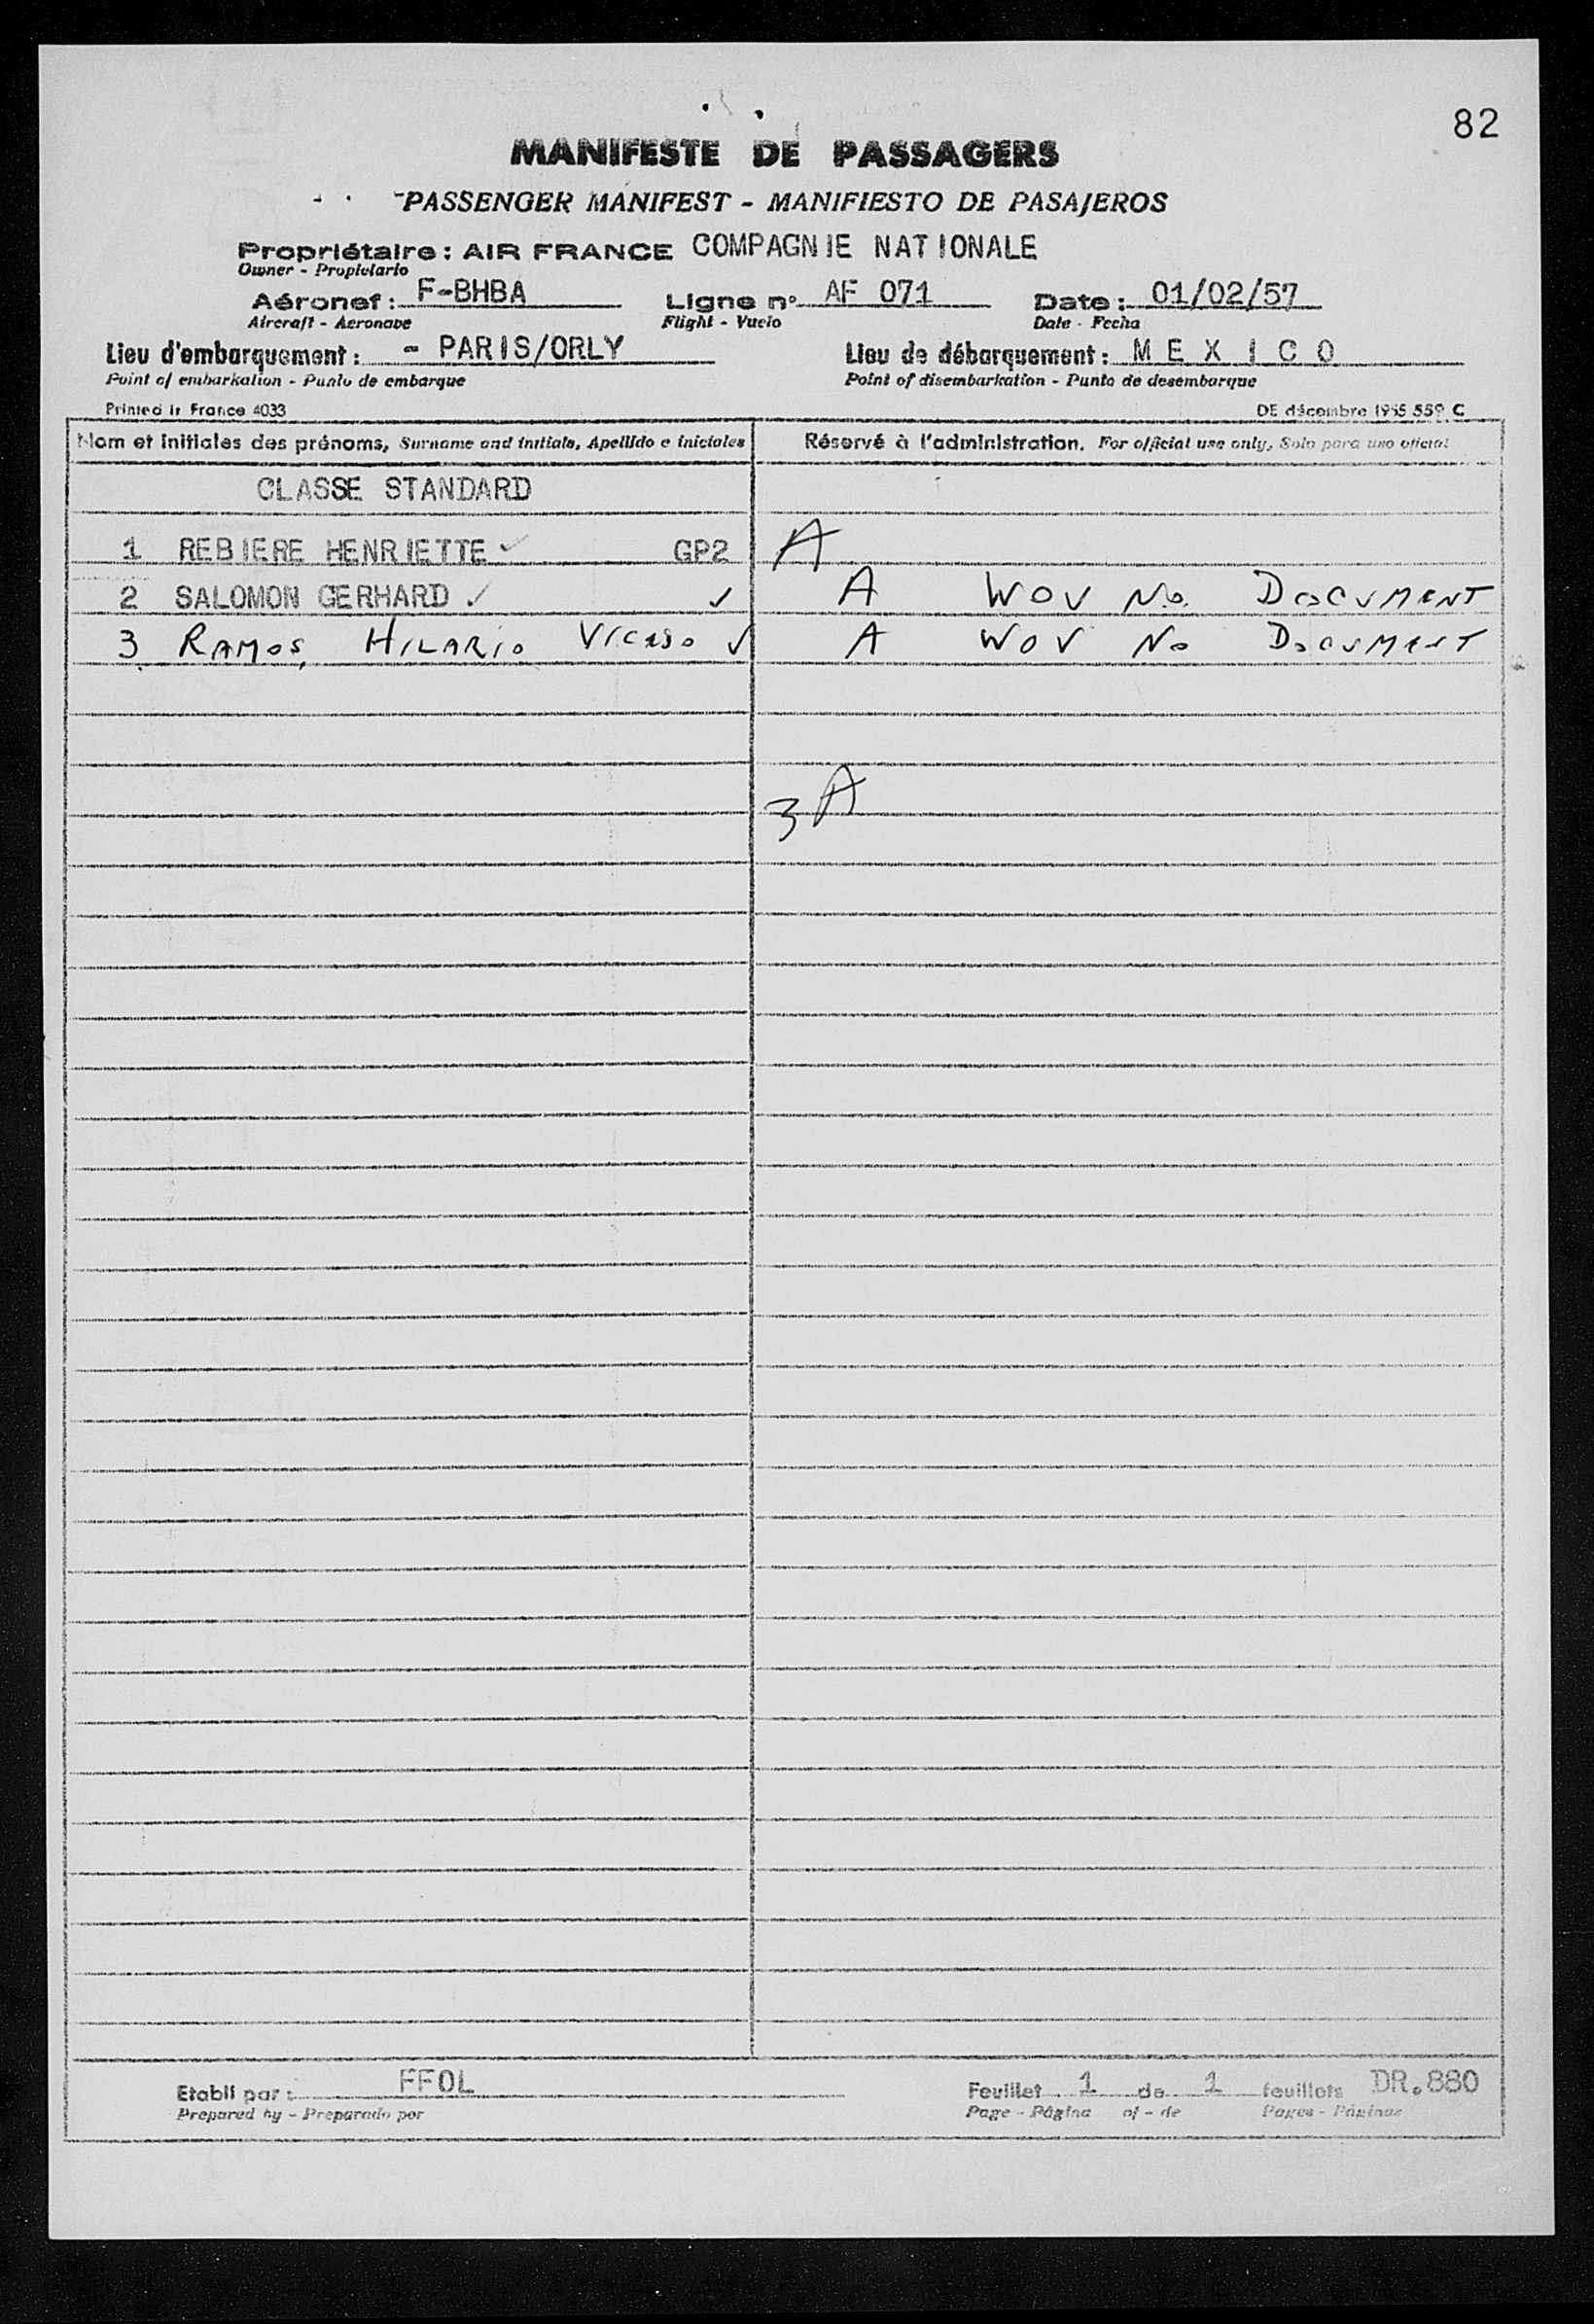 82
MANIFESTE DE PASSAGERS
PASSENGER MANIFEST - MANIFIESTO DE PASAJEROS
Propriétaire : AIR FRANCE COMPAGNIE NATIONALE
Owner - Propietario
Aéronef : F-BHBA Ligne n° AF 071 Date : 01/02/57
Aircraft - Aeronave Flight - Vuelo Date - Fecha
Lieu d'embarquement : - PARIS/ORLY Lieu de débarquement : M E X I C O
Point of embarkation - Punto de embarque Point of disembarkation - Punto de desembarque
Printed in France 4033 DE décembre 1955 559 C
Nom et initiales des prénoms, Surname and initials, Apellido e iniciales Réservé à l'administration. For official use only, Solo para uso oficial
CLASSE STANDARD
1 REBIERE HENRIETTE ✓ GP2 A
2 SALOMON GERHARD ✓ ✓ A WOV No. DOCUMENT
3 RAMOS, HILARIO ✓ A WOV No DOCUMENT
3 A
Etabli par : FFOL Feuillet 1 de 1 feuillets DR.880
Prepared by - Preparado por Page - Página of - de Pages - Páginas